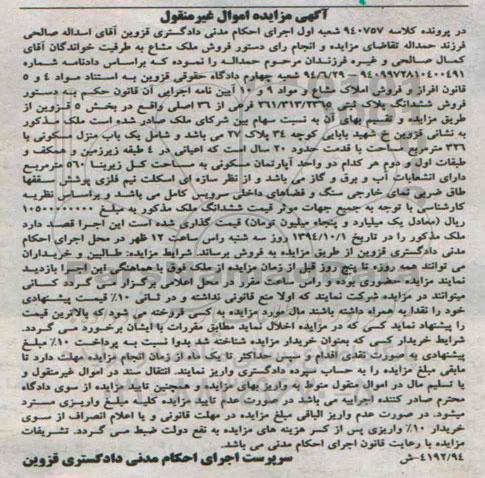 آگهی مزایده اموال غیرمنقول
در پرونده کلاسه ۹۴۰۷۵۷ شعبه اول اجرای احکام مدنی دادگستری قزوین آقای اسداله صالحی
فرزند حمداله تقاضای مزایده و انجام رای دستور فروش ملک مشاع به طرفیت خواندگان آقای
کمال صالحی و غیره فرزندان مرحوم حمداله را نموده که براساس دادنامه شماره
۹۴۰۹۹۷۲۸۱۰۴۰۰۴۹۱ – ۹۴/۶/۲۹ شعبه چهارم دادگاه حقوقی قزوین به استناد مواد ۴ و ۵
قانون افراز و فروش املاک مشاع و مواد ۹ و ۱۰ آیین نامه اجرایی آن قانون حکم به دستور
فروش ششدانگ پلاک ثبتی ۳۶۱/۳۱۳/۲۳۶۵ فرعی از ۳۶ اصلی واقع در بخش ۵ قزوین از
طریق مزایده و تقسیم بهای آن به نسبت سهام بین شرکای ملک صادر شده است ملک مذکور
به نشانی قزوین خ شهید بابایی کوچه ۳۴ پلاک ۲۷ می باشد و شامل یک باب منزل مسکونی با
۳۳۶ مترمربع مساحت با قدمت حدود ۲۰ سال است که اعیانی در ۴ طبقه زیرزمین و همکف و
طبقات اول و دوم هر کدام دو واحد آپارتمان مسکونی به مساحت کل زیربنا ۵۶۰ مترمربع
دارای انشعابات آب و برق و گاز می باشد و از نظر سازه ای اسکلت نیم فلزی پوشش سقفها
طاق ضربی نمای خارجی سنگ و فضاهای داخلی سرویس کامل می باشد و براساس نظریه
کارشناسی با توجه به جمیع جهات موثر قیمت ششدانگ ملک مذکور به مبلغ ۱۰۵۰۰۰۰۰۰۰۰
ریال (معادل یک میلیارد و پنجاه میلیون تومان) قیمت گذاری شده است این اجرا قصد دارد
ملک مذکور را در تاریخ ۱۳۹۴/۱۰/۱ روز سه شنبه راس ساعت ۱۲ ظهر در محل اجرای احکام
مدنی دادگستری قزوین از طریق مزایده به فروش برساند. شرایط مزایده: طالبین و خریداران
می توانند همه روزه تا پنج روز قبل از زمان مزایده از ملک فوق با هماهنگی این اجرا بازدید
نمایند مزایده حضوری بوده و راس ساعت مقرر در محل اعلامی برگزار می گردد کسانی
میتوانند در مزایده شرکت نمایند که اولا منع قانونی نداشته و در ثانی ۱۰٪ قیمت پیشنهادی
خود را نقدا به همراه داشته باشند مال مورد مزایده به کسی فروخته می شود که بالاترین قیمت
را پیشنهاد نماید کسی که در مزایده اخلال نماید مطابق مقررات با ایشان برخورد می گردد.
شرایط خریدار کسی که بعنوان خریدار مزایده شناخته شد بدوا نسبت به پرداخت ۱۰٪ مبلغ
پیشنهادی به صورت نقدی اقدام و سپس حداکثر تا یک ماه از زمان انجام مزایده مهلت دارد تا
مابقی مبلغ مزایده را به حساب سپرده دادگستری واریز نمایند. انتقال سند در اموال غیرمنقول و
یا تسلیم مال در اموال منقول منوط به واریز بهای مزایده و همچنین تایید مزایده از سوی دادگاه
محترم صادر کننده اجراییه می باشد در صورت عدم تایید مزایده کلیه مبالغ واریزی مسترد
میشود. در صورت عدم واریز الباقی مبلغ مزایده در مهلت قانونی و یا اعلام انصراف از سوی
خریدار ۱۰٪ واریزی پس از کسر هزینه های مزایده به نفع دولت ضبط می گردد. تشریفات
مزایده با رعایت قانون اجرای احکام مدنی می باشد.
۴۱۹۲/۹۴-ش
سرپرست اجرای احکام مدنی دادگستری قزوین